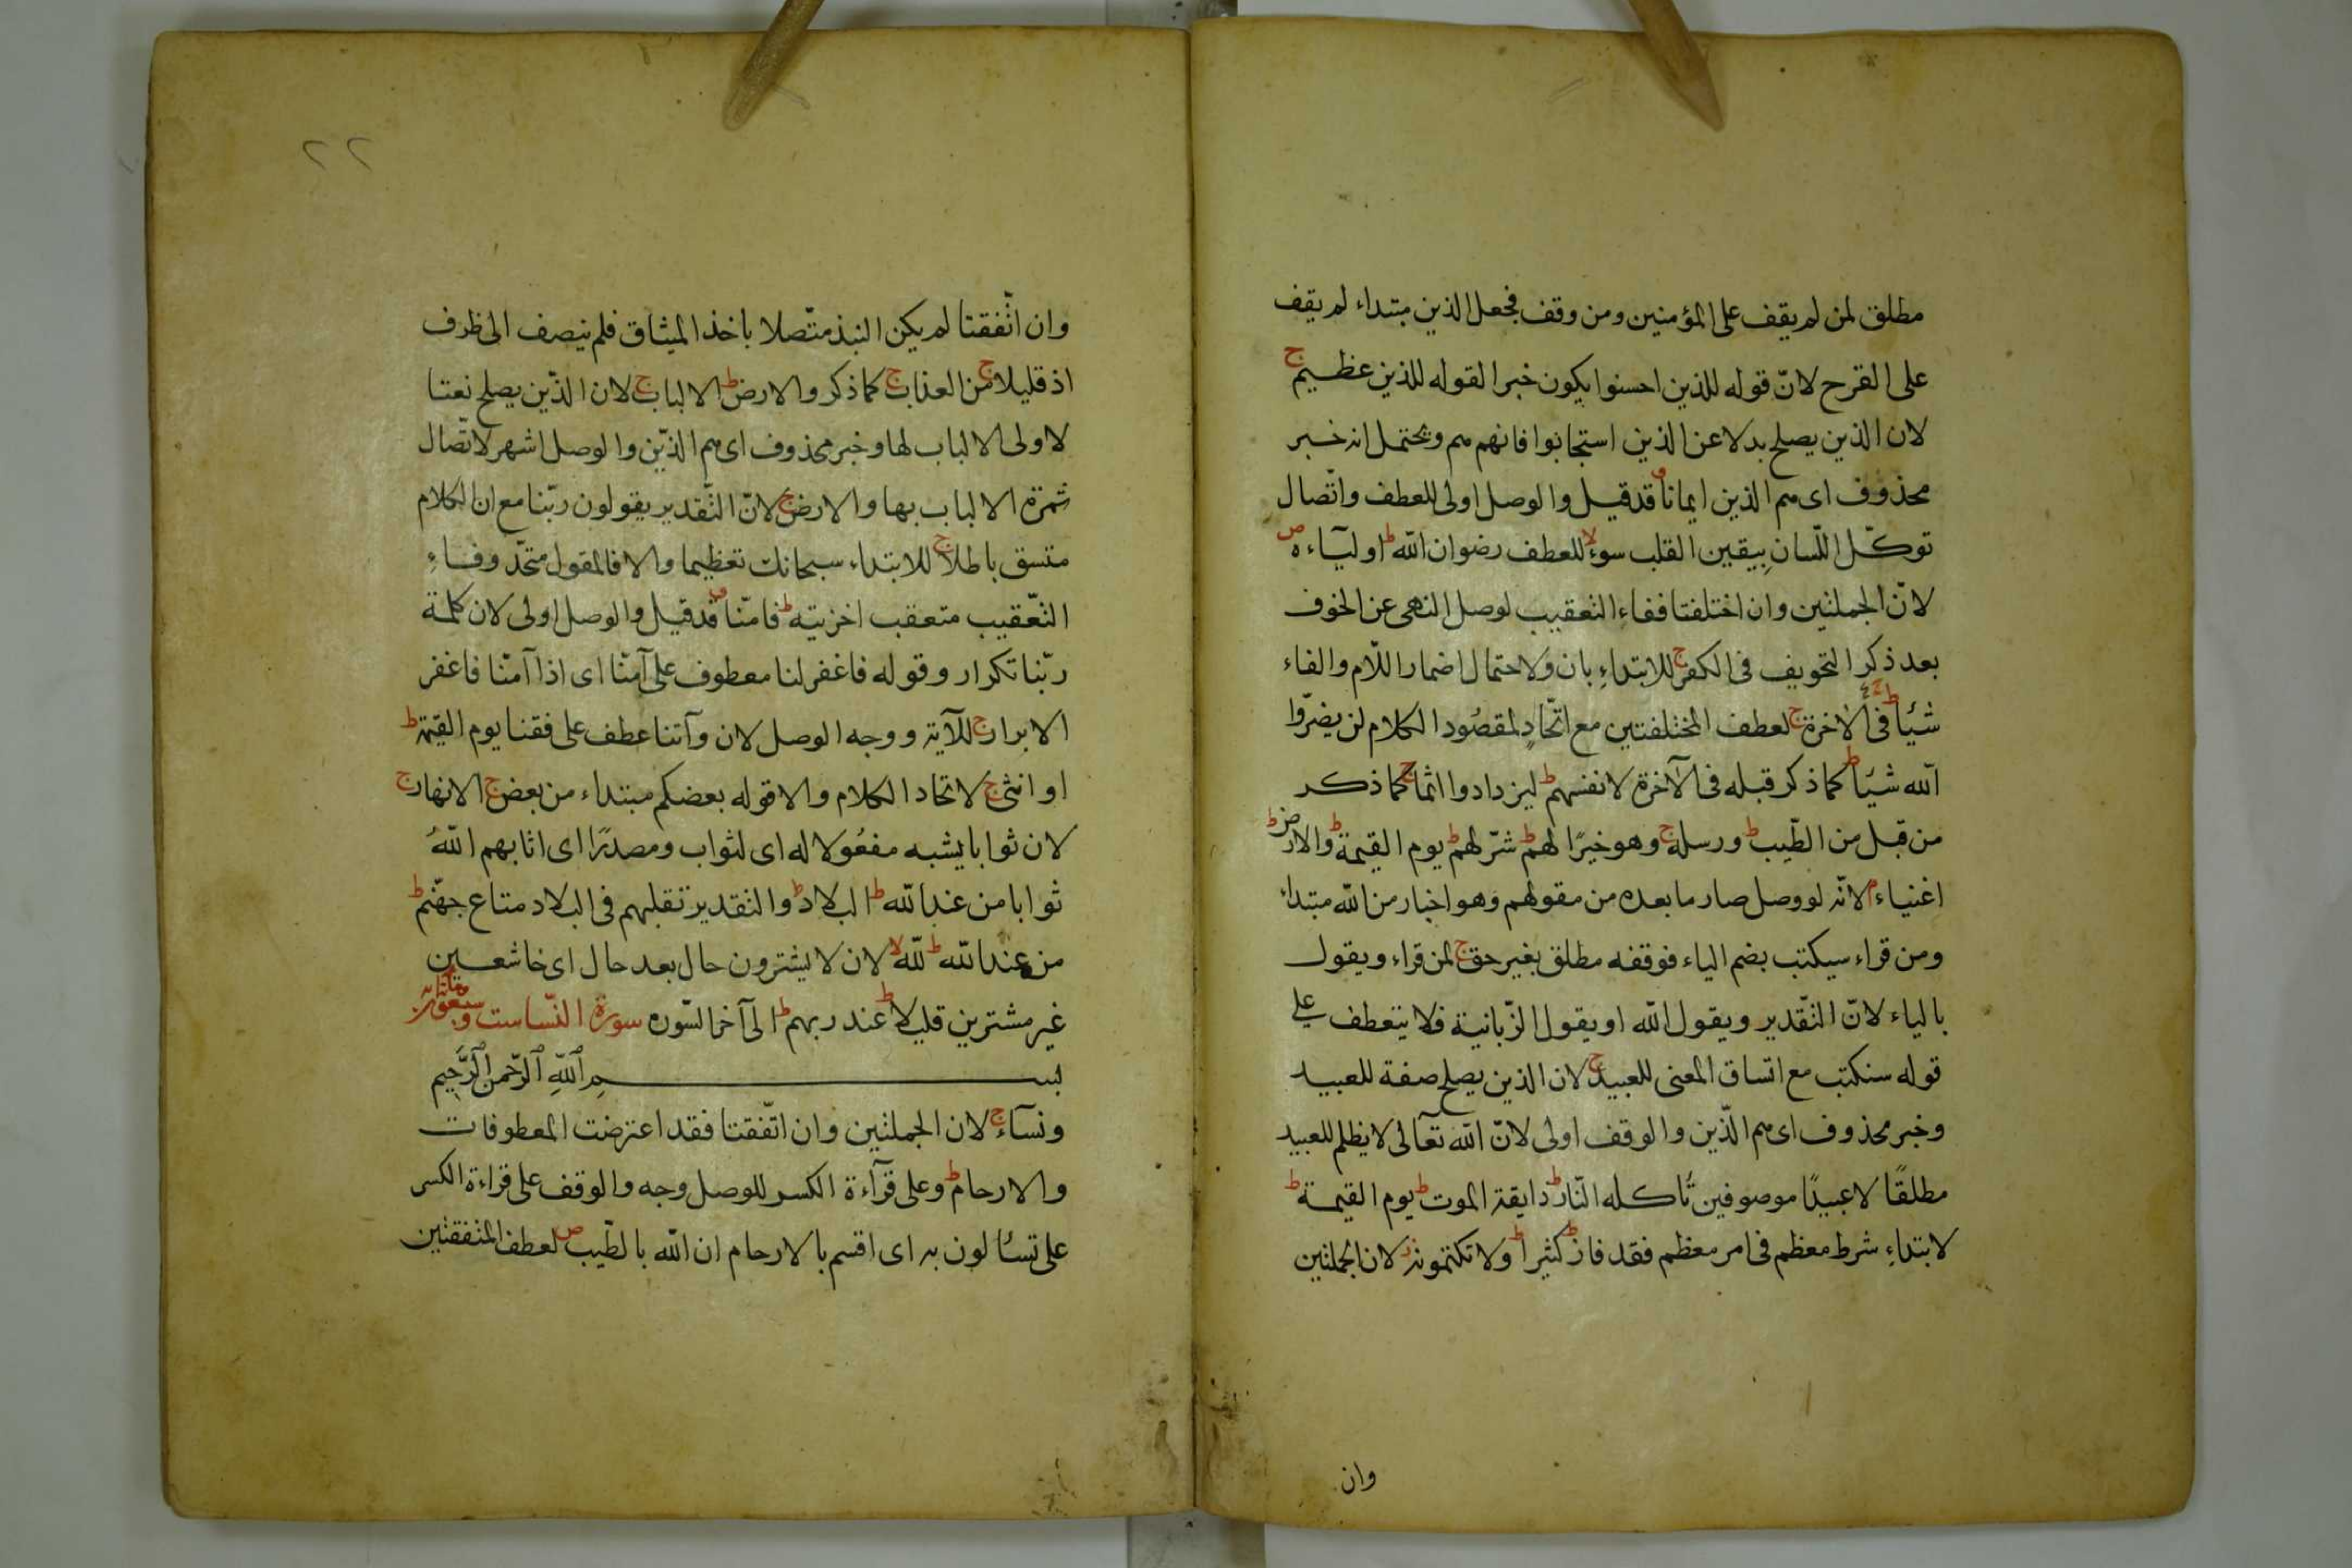 مطلق لمن لم يقف على المؤمنين ومن وقف فجعل الذين مبتداء لم يقف
على القرح لانّ قوله للذين احسنوا يكون خبرا لقوله للذين عظيم ج
لان الذين يصلح بدلا عن الذين استجابوا فانهم هم ويحتمل انه خبر
محذوف اى هم الذين ايمانا ق قد قيل والوصل اولى للعطف واتّصال
توكّل اللّسان بيقين القلب سوء لا للعطف رضوان الله ط اولياءه ص
لانّ الجملتين وان اختلفتا ففاء التعقيب لوصل النهى عن الخوف
بعد ذكر التخويف فى الكفر ج للابتداء بان ولاحتمال اضمار اللّام والفاء
شيئا ط فى الآخرة ج لعطف المختلفتين مع اتّحاد لمقصود الكلام لن يضرّوا
الله شيئا ط كما ذكر قبله فى الآخرة لانفسهم ط ليزدادوا اثما ج كما ذكر
من قبل من الطّيب ط ورسله ج وهو خيرًا لهم ط شرّ لهم ط يوم القيمة ط والارض ط
اغنياء م لانّه لو وصل صار ما بعده من مقولهم وهو اخبار من الله مبتداء
ومن قراء سيكتب بضم الياء فوقفه مطلق بغير حق ج لمن قراء ويقول
بالياء لانّ التّقدير ويقول الله او يقول الزّبانية فلا يتعطف على
قوله سنكتب مع اتساق المعنى للعبيد ج لان الذين يصلح صفة للعبيد
وخبر محذوف اى هم الّذين والوقف اولى لانّ الله تعالى لا يظلم للعبيد
مطلقًا لا عبيدًا موصوفين تأكله النّار ط دايقة الموت ط يوم القيمة ط
لابتداء شرط معظم فى امر معظم فقد فاز ط كثيرا ط ولا تكتمونه ز لان الجملتين
وان
٢٢
وان اتّفقتا لم يكن النبذ متّصلا باخذ الميثاق فلم ينصف الى ظرف
اذ قليلا ج من العذاب ج كما ذكر والارض ط الالباب ج لان الذّين يصلح نعتا
لاولى الالباب لها وخبر محذوف اى هم الذّين والوصل اشهر لاتّصال
ثمرة الالباب بها والارض ج لانّ التّقدير يقولون ربّنا مع ان الكلام
متسق باطلا ج للابتداء سبحانك تعظيما والا فالمقول متحّد وفاء
التّعقيب متعقب اخزيته ط فامنّا ق قد قيل والوصل اولى لان كلمة
ربّنا تكرار وقوله فاغفر لنا معطوف على آمنّا اى اذا آمنّا فاغفر
الابرار ج للآية ووجه الوصل لان وآتنا عطف على فقنا يوم القيمة ط
او انثى ج لاتحاد الكلام والا قوله بعضكم مبتداء من بعض ج الانهار ج
لان ثوابا يشبه مفعُولا له اى لثواب ومصدرًا اى اثابهم اللهُ
ثوابا من عند الله ط البلاد ط والتقدير تقلبهم فى البلاد متاع جهنّم ط
من عند الله ط لله لا لان لا يشترون حال بعد حال اى خاشعين
غير مشترين قليلا ط عند ربهم ط الى آخر السّوره سورة النّسا ست وسبعون ومائة آية
بسم الله الرّحمن الرَّحِيم
ونساء ج لان الجملتين وان اتّفقتا فقد اعترضت المعطوفات
والارحام ط وعلى قرآءة الكسر للوصل وجه والوقف على قراءة الكسر
على تسألون به اى اقسم بالارحام ان الله بالطّيب ص لعطف المتفقتين